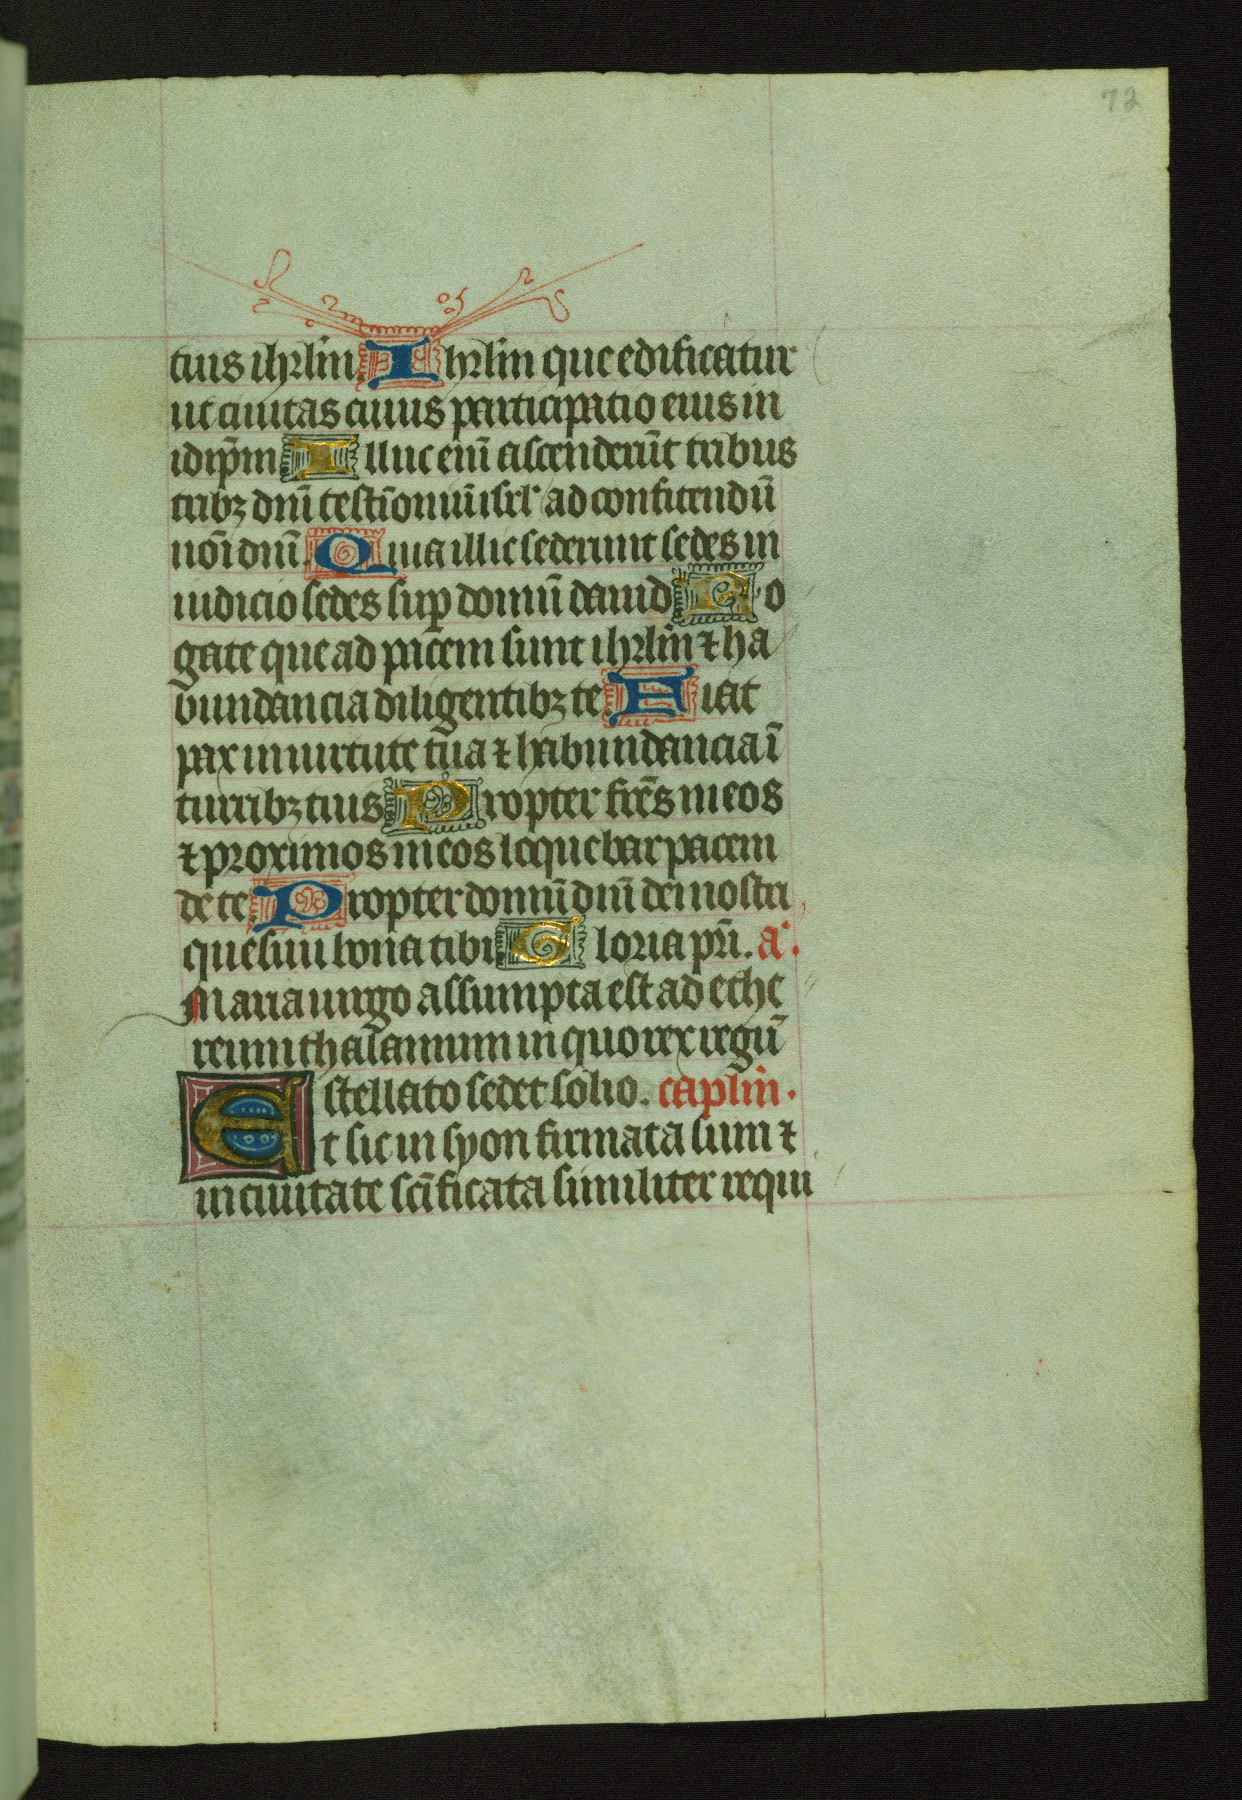 72
tuis ihrl̄m. Ihrl̄m que edificatur
ut ciuitas cuius participatio eius in
idip̄m Illuc eni̅ ascenderu̅t tribus
tribꝫ dn̄i testi̅oniu̅ isrl' ad confitendu̅
nōi dn̄i. Quia illic sederunt sedes in
iudicio sedes sup̲ domu̅ dauid Ro
gate que ad pacem sunt ihrl̄m ⁊ ha
bundancia diligentibꝫ te. Fiat
pax in uirtute tua ⁊ habundancia ī
turribꝫ tuis Propter fr̄es meos
⁊ proximos meos loquebar pacem
de te. Propter domu̅ dn̄i dei nostri
quesiui bona tibi Gloria pr̄i. a.
Maria uirgo assumpta est ad ethe
reum thalamum in quo rex regu̅
stellato sedet solio. capl̄m.
Et sic in syon firmata sum ⁊
in ciuitate sc̄ificata similiter requi